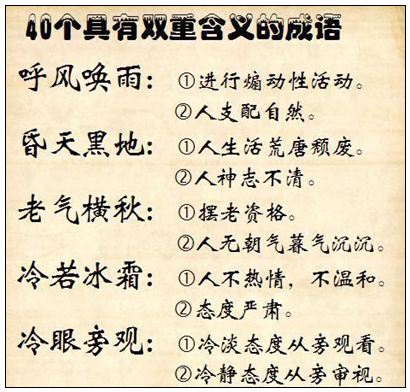 40个具有双重含义的成语
呼风唤雨: ①进行煽动性活动。
②人支配自然。
昏天黑地: ①人生活荒唐颓废。
②人神志不清。
老气横秋: ①摆老资格。
②人无朝气暮气沉沉。
冷若冰霜: ①人不热情，不温和。
②态度严肃。
冷眼旁观: ①冷淡态度从旁观看。
②冷静态度从旁审视。